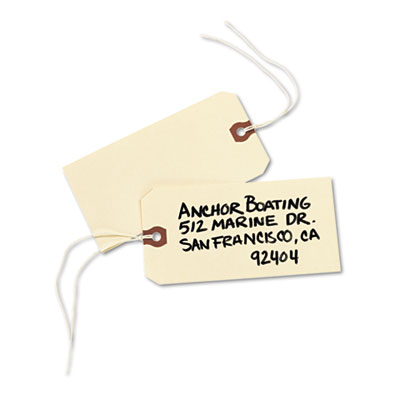 ANCHOR BOATING
512 MARINE DR.
SAN FRANCISCO, CA
92404